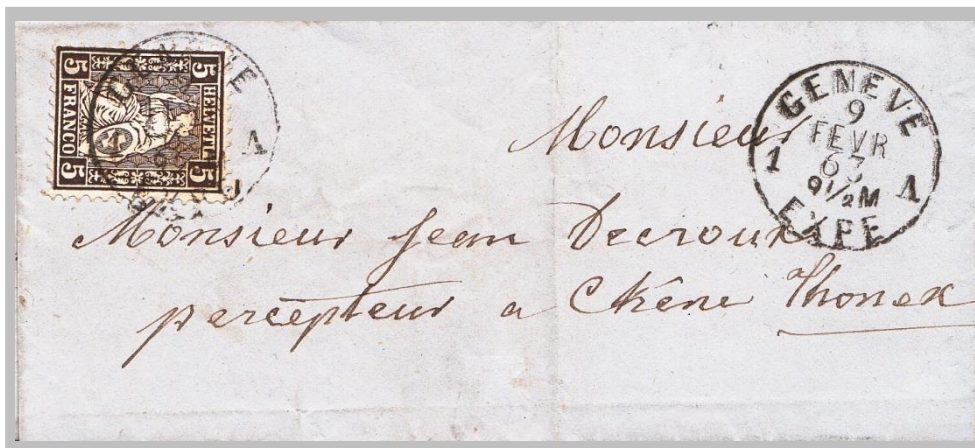 5 HELVETIA 5
5 FRANCO 5
GENEVE
GENEVE
9
FEVR
63
9½M
1 A
EXPE
Monsieur
Monsieur Jean Decroux
percepteur a Chêne Thonex